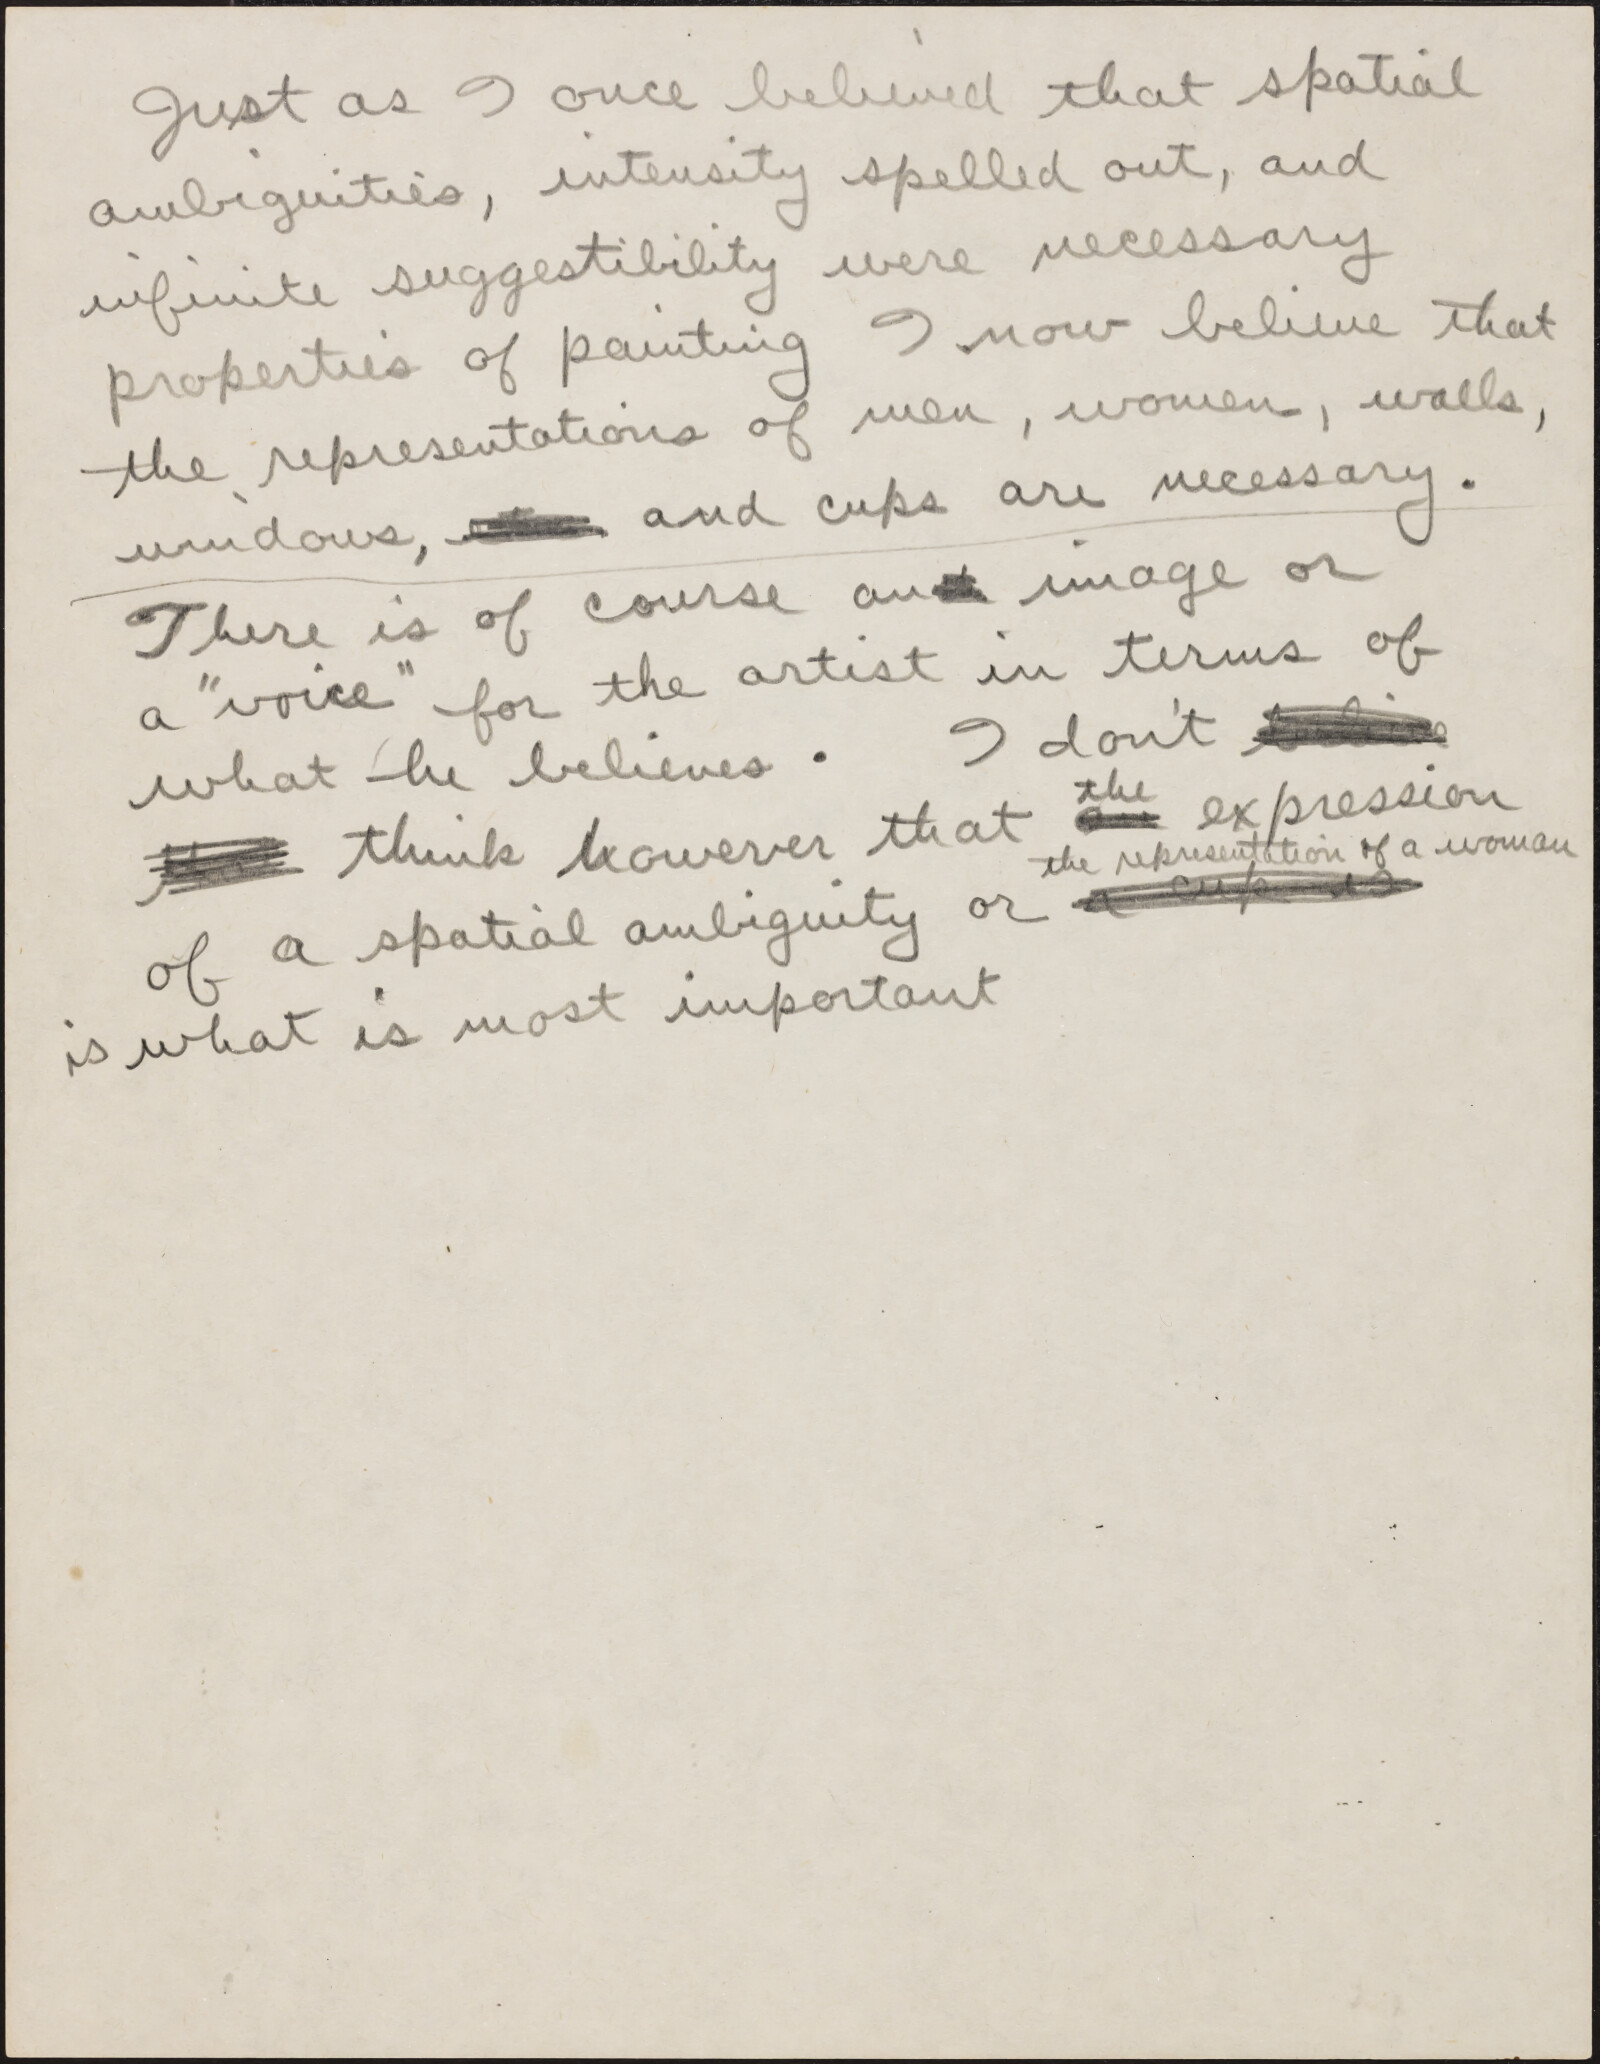 Just as I once believed that spatial
ambiguities, intensity spelled out, and
infinite suggestibility were necessary
properties of painting I now believe that
the representations of men, women, walls,
windows, and cups are necessary.
There is of course an image or
a "voice" for the artist in terms of
what he believes. I don't believe
think however that the expression
the representation of a woman
of a spatial ambiguity or a cup is
is what is most important